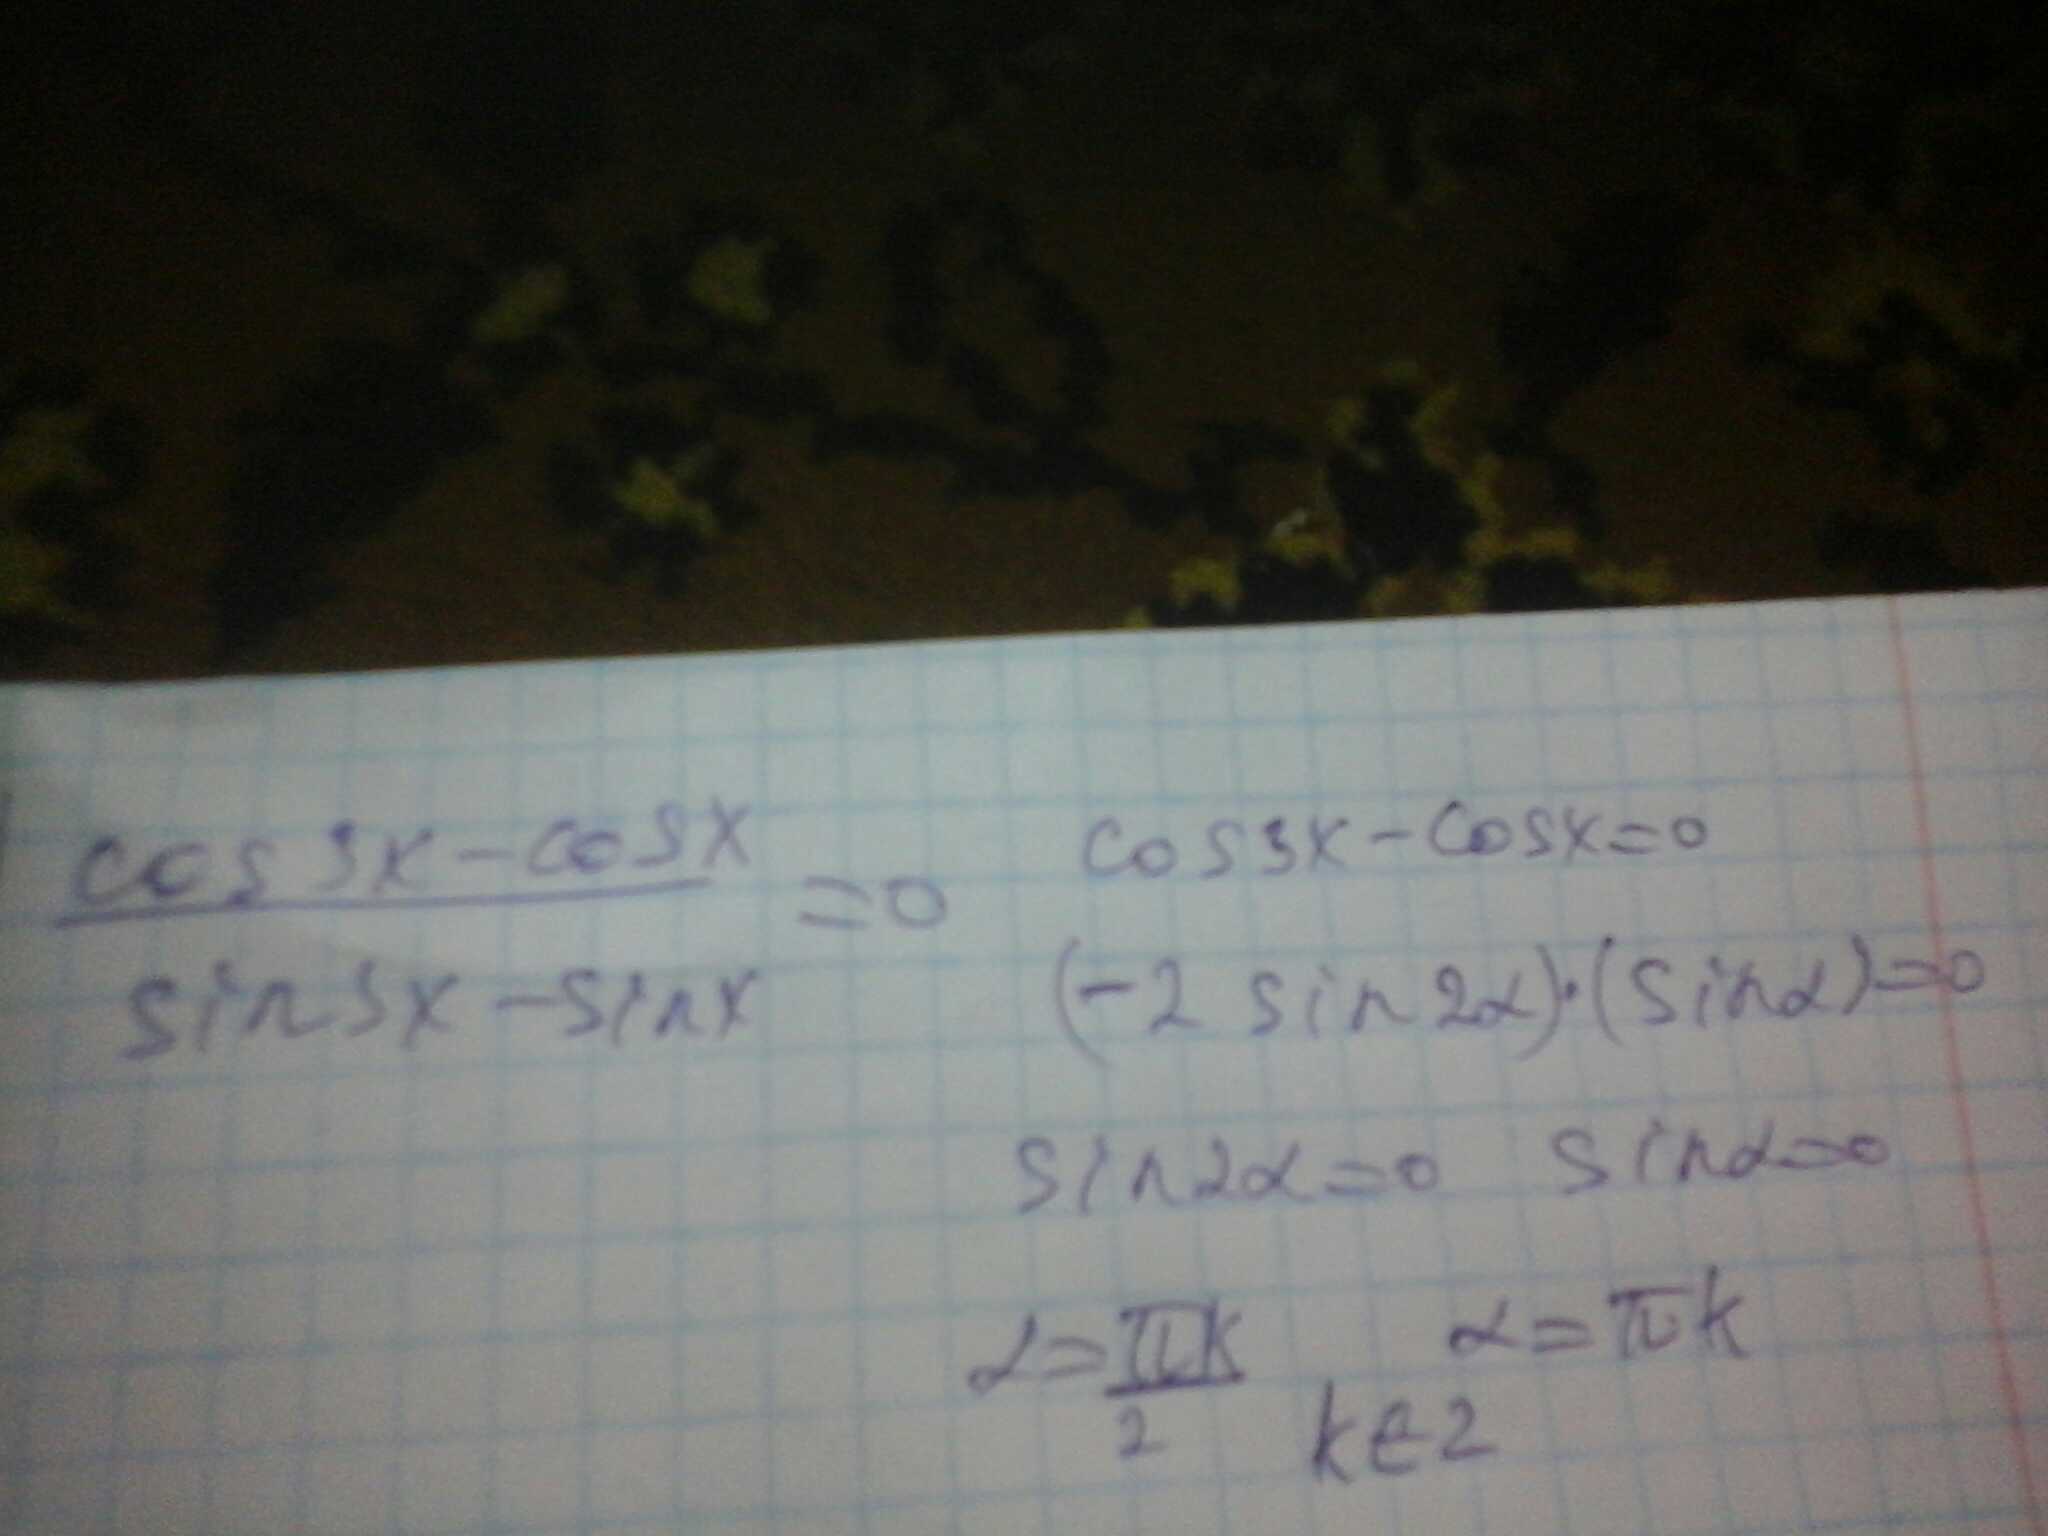 cos3x-cosx
———————— =0
sin3x-sinx
cos3x-cosx=0
(-2 sin2α)·(sinα)=0
sin2α=0 sinα=0
α=πk/2 α=πk
k∈Z